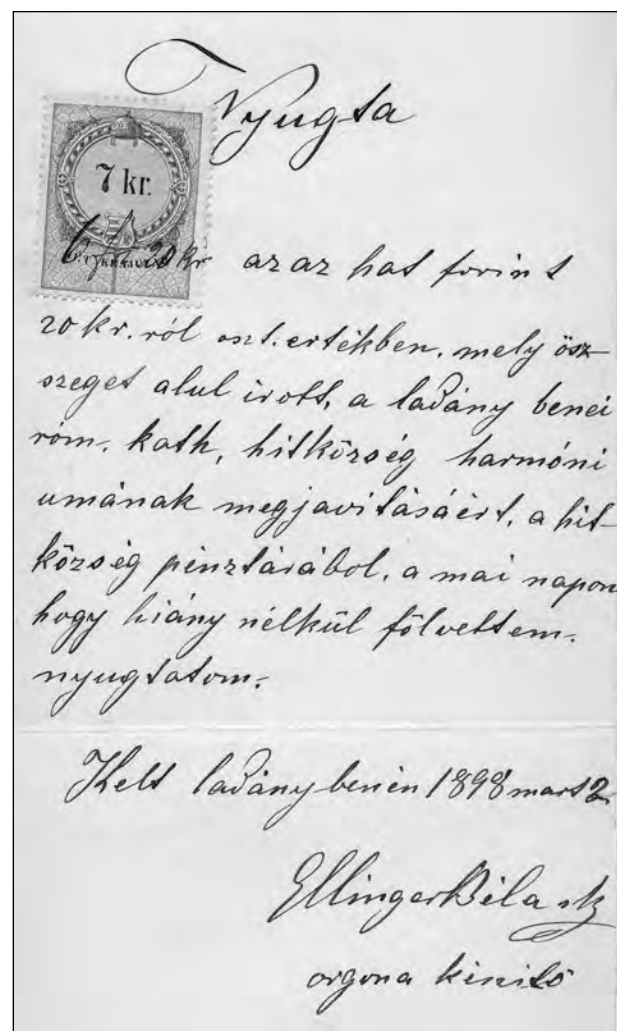 Nyugta
7 kr.
6 f 20 kr azaz hat forint
20 kr. ról oszt. ertékben, mely ösz-
szeget alul irott, a ladány benei
róm. kath, hitközség harmóni
umának megjavitásáért, a hit-
község pénztárából, a mai napon
hogy hiány nélkül fölvettem.
nyugtatom.
Kelt ladány benén 1898 mart 2.
Ellinger Béla sk
orgona készitő